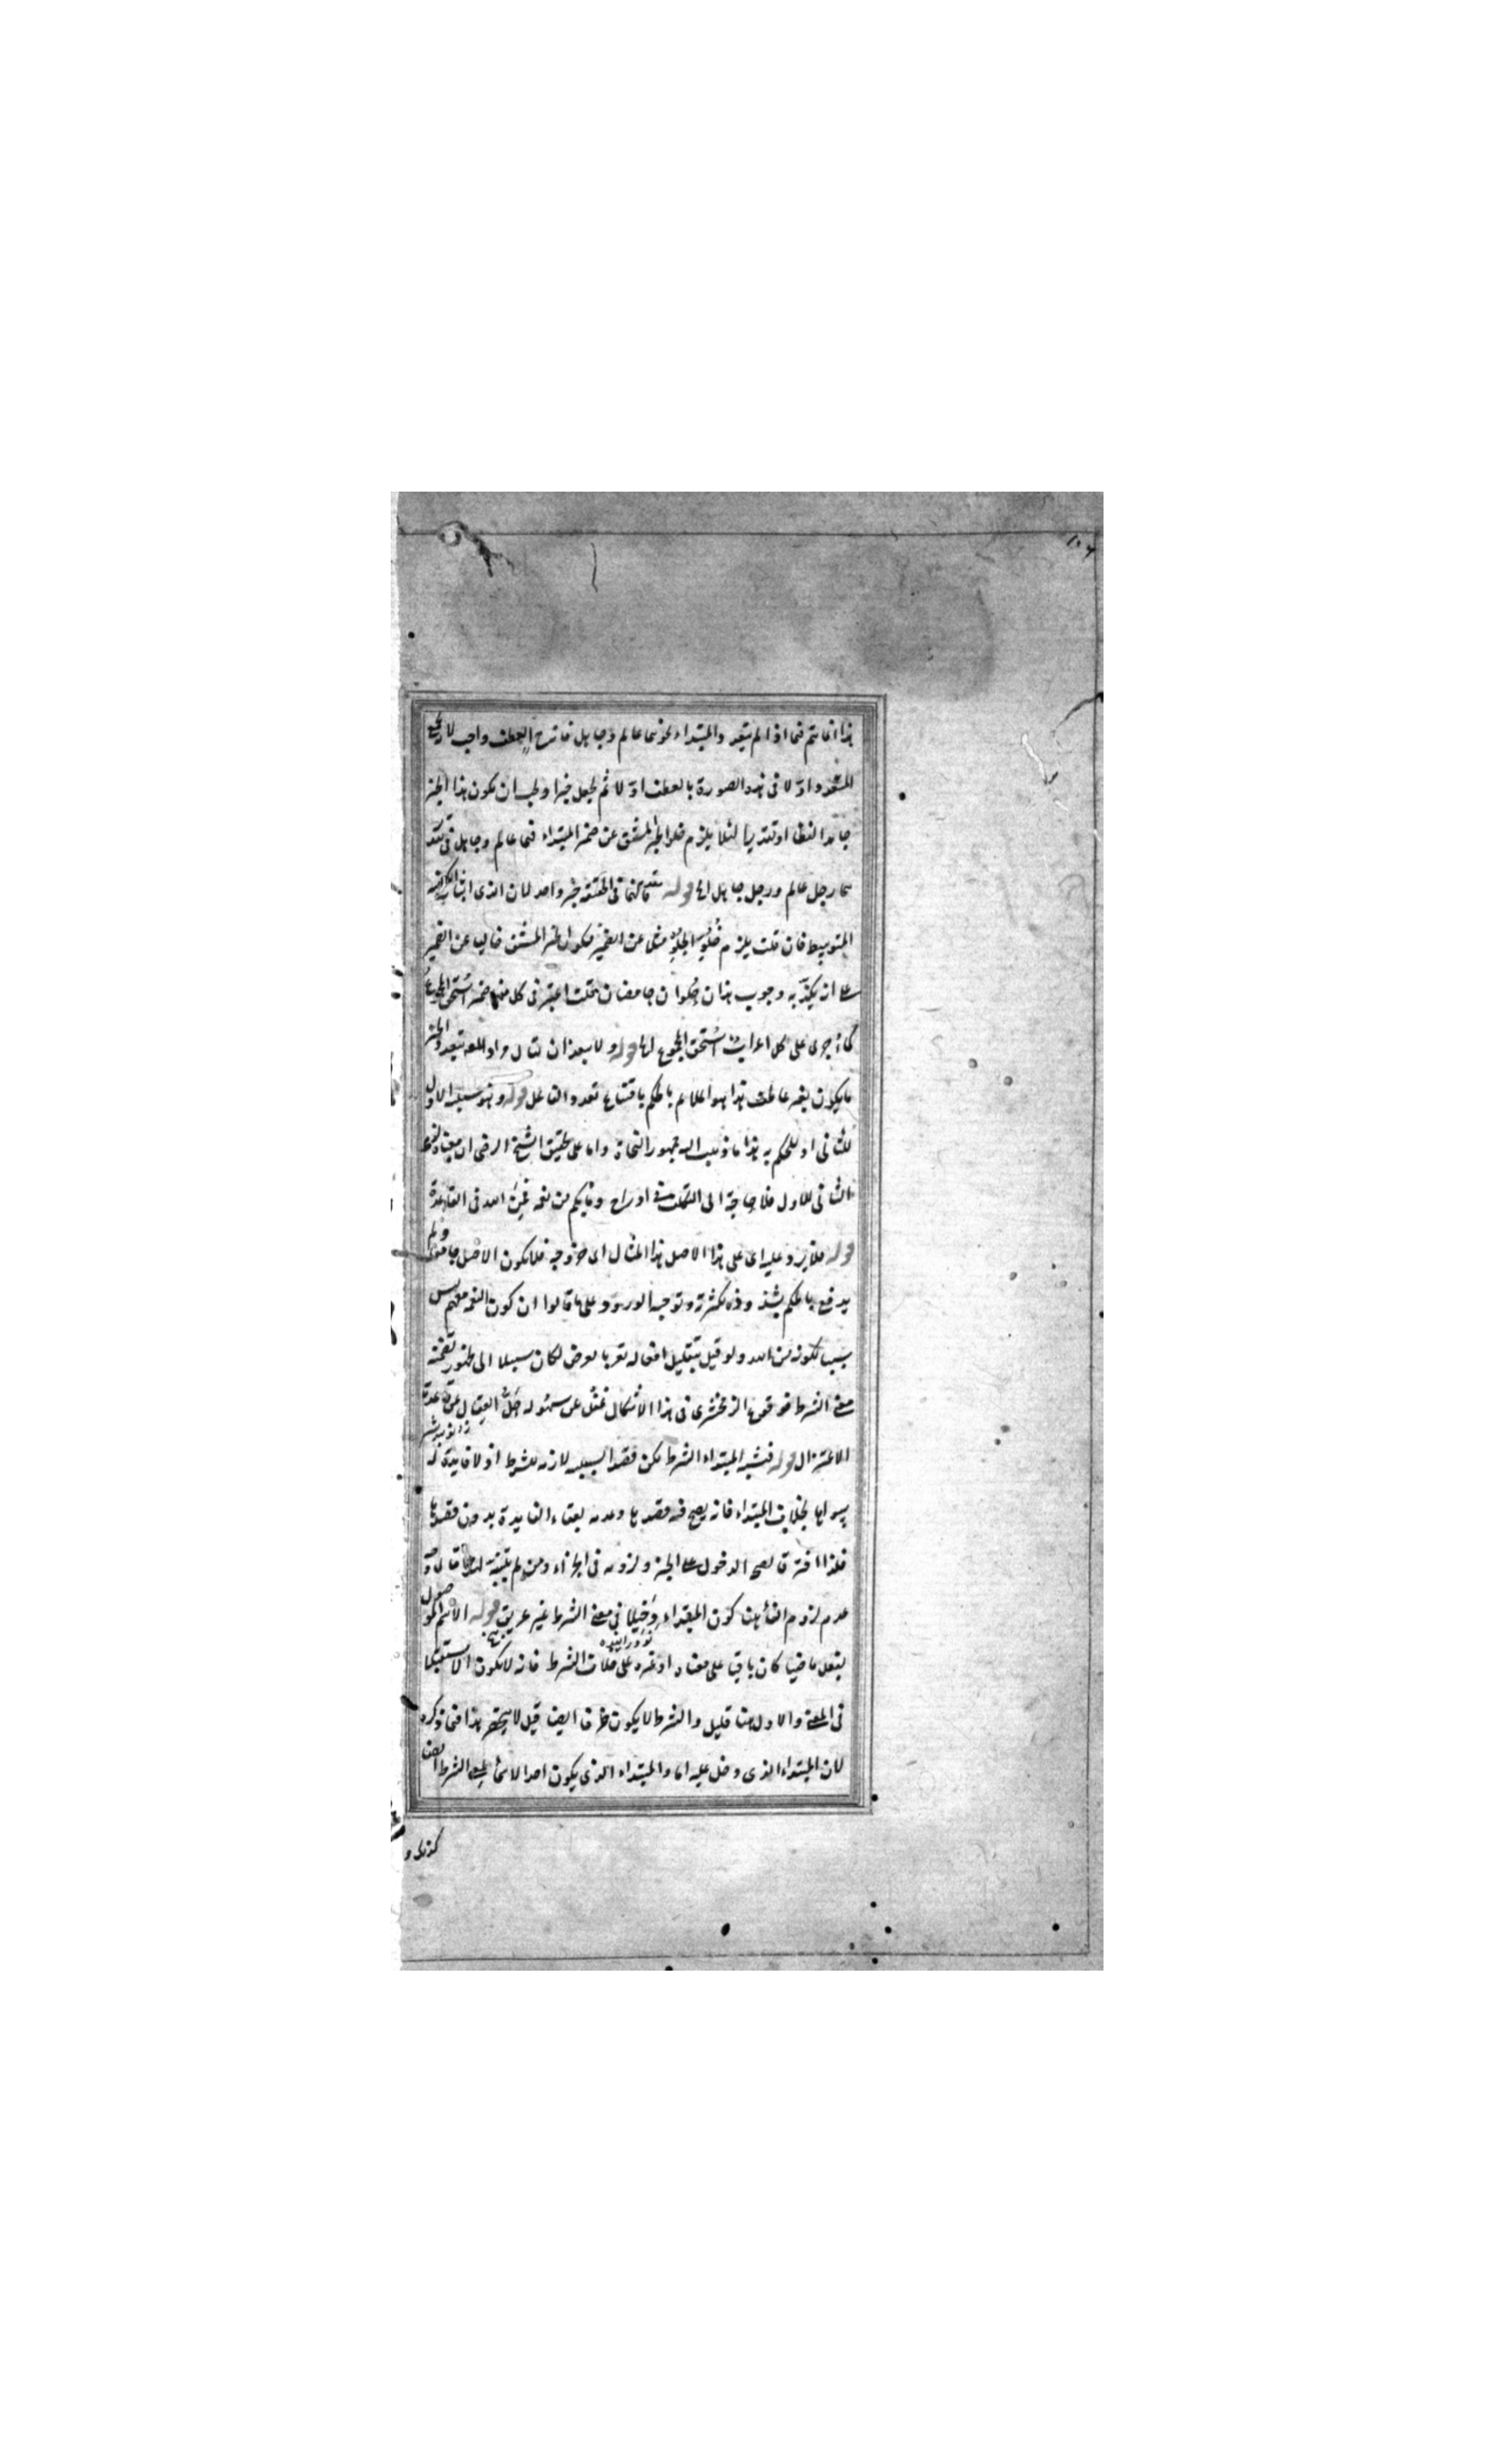 هذا انما يتم فيما اذا لم يتعدد المبتداء نحو هما عالم وجاهل فانه ح العطف واجب لا
المتعدد اولا فى هذه الصورة بالعطف اولا ثم يجعل خبرا ويجب ان يكون هذا الخبر
جامدا لفظا او تقديرا لئلا يلزم خلو الخبر المشتق عن ضمير المبتداء فهما عالم وجاهل فى تقدير
هما رجل عالم ورجل جاهل قوله فى الحقيقة خبر واحد لان الذى
المتوسط فان قلت يلزم خلو مثلا عن الضمير فيكون الخبر المشتق خاليا عن الضمير
على انه يكذبه وجوب هذان حلوان حامضان قلت اعتبر فى كل منهما ضمير استحقه المجموع
كما جرى على كل اعراب استحقه المجموع قوله ولا يبعد ان يقال مراد المص بتعدد الخبر
ما يكون بغير عاطف هذا هو الملايم قوله وهو سببية الاول
للثانى او للحكم به هذا ما ذهب اليه جمهور النحاة واما على تحقيق الشيخ الرضى ان معناه لزوم
الثانى للاول فلا حاجة الى التكلف فى ادراج وما بكم من نعمة فمن الله فى القاعدة
قوله فلا يرد عليه اى على هذا الاصل هذا المثال اى خروجه فلا يكون الاصل جامعا ولم
يدفع بالحكم بشذوذه لكثرته وتوجيه الورود على ما قالوا ان كون النعمة معهم ليس
سببا لكونه من الله ولو قيل بتعليل افعاله تعالى لكان سبيلا الى ظهور تضمنه
معنى الشرط فوقوع الزمخشرى فى هذا الاشكال
الاعتزال قوله فيشبه المبتداء الشرط لكن قصد السببية لازم للشرط اذ لا فايدة له
سواها بخلاف المبتداء فانه يصح فيه قصدها وعدمه لبقاء الفايدة بدون قصدها
فلذا افترقا لصحة الدخول على الخبر ولزومه فى الجزاء ومن لم يتنبه لهذا قال وجه
عدم لزوم الفاء هنا كون المبتداء دخيلا فى معنى الشرط غير عريق فيه قوله الاسم الموصول
بفعل ماضيا كان باقيا على معناه او غيره على خلاف الشرط فانه لا يكون الا مستقبلا
فى المعنى والاول هنا قليل والشرط لا يكون ظرفا ايضا قيل لا ينحصر هذا فيما ذكره
لان المبتداء الذى دخل عليه اما والمبتداء الذى يكون احد الاسماء لمعنى الشرط ايضا
كذلك و